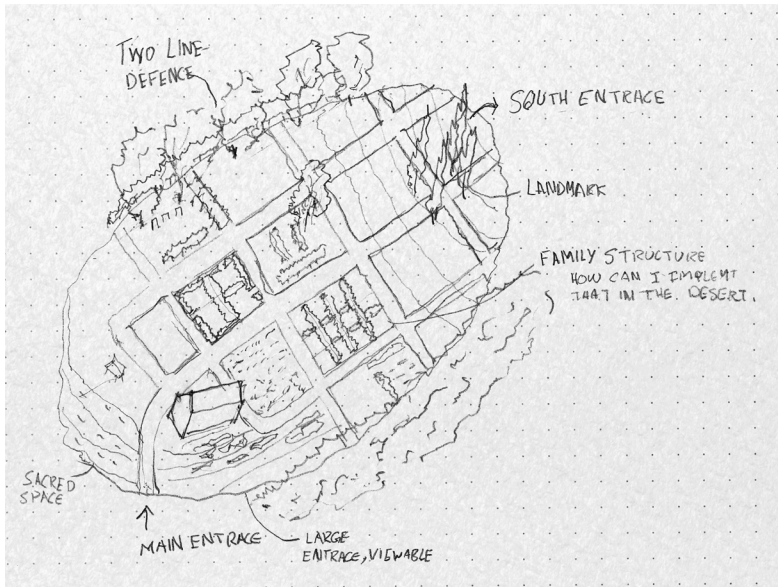 TWO LINE
DEFENCE
SOUTH ENTRACE
LANDMARK
FAMILY STRUCTURE
HOW CAN I IMPLEMT
THAT IN THE DESERT.
SACRED
SPACE
MAIN ENTRACE
LARGE
ENTRACE, VIEWABLE